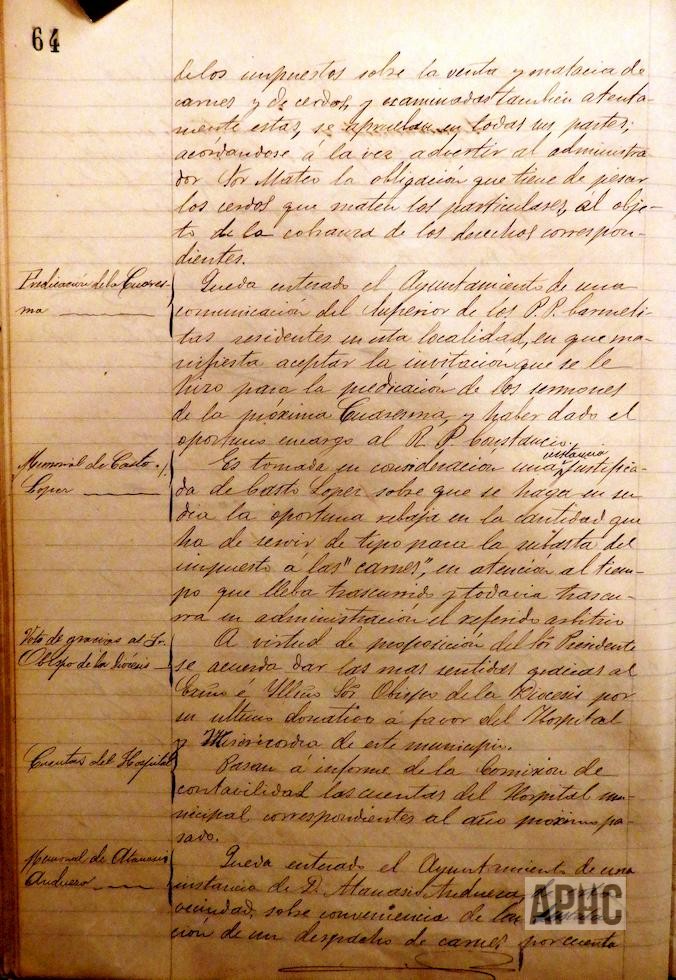 64
de los impuestos sobre la venta y matacia de
carnes y de cerdos, y examinadas tambien atenta-
mente estas, se aprueban en todas sus partes;
acordándose á la vez advertir al administra
dor Sor Mateo la obligacion que tiene de pesar
los cerdos que maten los particulares, al obje-
to de la cobranza de los derechos correspon-
dientes.
Predicación de la Cuares-
ma
Queda enterado el Ayuntamiento de una
comunicación del Superior de los P.P. Carmeli-
tas residentes en esta localidad, en que ma-
nifiesta aceptar la invitación que se le
hizo para la predicación de los sermones
de la próxima Cuaresma, y haber dado el
oportuno encargo al R. P. Constancio.
Memorial de Casto
Loper
Es tomada en consideracion una instancia justifica-
da de Casto Loper sobre que se haga en su
dia la oportuna rebaja en la cantidad que
ha de servir de tipo para la subasta del
impuesto á las "carnes", en atención al tiem-
po que lleba trascurrido y todavia trascu-
rra en administración el referido arbitrio
Voto de gracias al Sr.
Obispo de la diócesis
A virtud de proposición del Sor Presidente
se acuerda dar las mas sentidas gracias al
Excmo é Yllmo Sor Obispo de la Diocesis por
su ultimo donativo a favor del Hospital
y Misericordia de este municipio.
Cuentas del Hospital
Pasan á informe de la Comision de
contabilidad las cuentas del Hospital mu-
nicipal correspondientes al año próximo pa-
sado.
Memorial de Atanasio
Andueza
Queda enterado el Ayuntamiento de una
instancia de D. Atanasio Andueza
vecindad, sobre conveniencia de la
ción de un despacho de carnes por cuenta
APHC